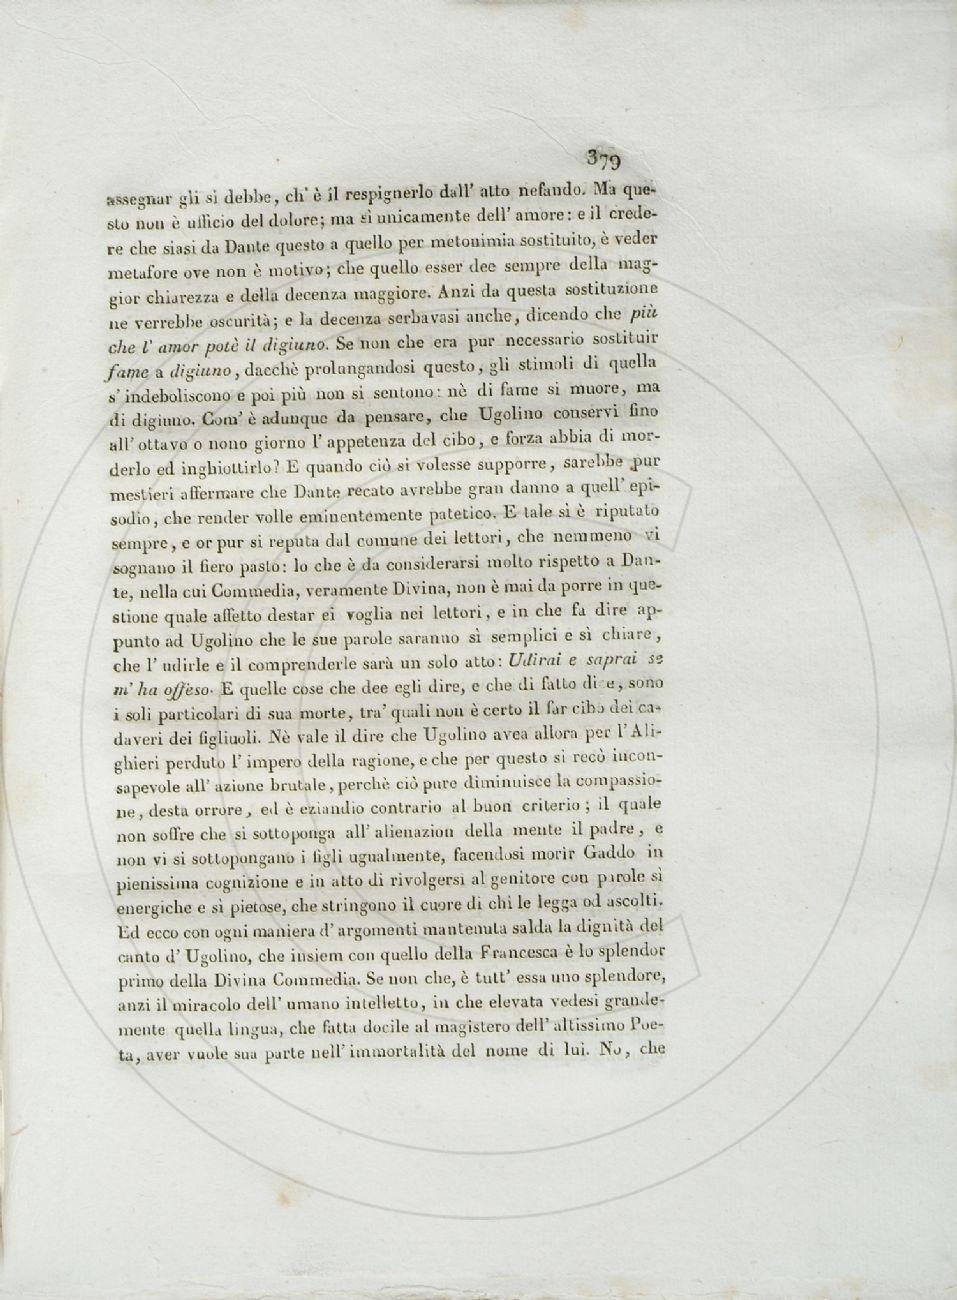 379
assegnar gli si debbe, ch' è il respignerlo dall' atto nefando. Ma que-
sto non è ufficio del dolore; ma sì unicamente dell' amore: e il crede-
re che siasi da Dante questo a quello per metonimia sostituito, è veder
metafore ove non è motivo; che quello esser dee sempre della mag-
gior chiarezza e della decenza maggiore. Anzi da questa sostituzione
ne verrebbe oscurità; e la decenza serbavasi anche, dicendo che più
che l' amor potè il digiuno. Se non che era pur necessario sostituir
fame a digiuno, dacchè prolungandosi questo, gli stimoli di quella
s' indeboliscono e poi più non si sentono: nè di fame si muore, ma
di digiuno. Com' è adunque da pensare, che Ugolino conservi fino
all' ottavo o nono giorno l' appetenza del cibo, e forza abbia di mor-
derlo ed inghiottirlo? E quando ciò si volesse supporre, sarebbe pur
mestieri affermare che Dante recato avrebbe gran danno a quell' epi-
sodio, che render volle eminentemente patetico. E tale si è riputato
sempre, e or pur si reputa dal comune dei lettori, che nemmeno vi
sognano il fiero pasto: lo che è da considerarsi molto rispetto a Dan-
te, nella cui Commedia, veramente Divina, non è mai da porre in que-
stione quale affetto destar ei voglia nei lettori, e in che fa dire ap-
punto ad Ugolino che le sue parole saranno sì semplici e sì chiare,
che l' udirle e il comprenderle sarà un solo atto: Udirai e saprai se
m' ha offeso. E quelle cose che dee egli dire, e che di fatto dice, sono
i soli particolari di sua morte, tra' quali non è certo il far cibo dei ca-
daveri dei figliuoli. Nè vale il dire che Ugolino avea allora per l'Ali-
ghieri perduto l' impero della ragione, e che per questo si recò incon-
sapevole all' azione brutale, perchè ciò pure diminuisce la compassio-
ne, desta orrore, ed è eziandio contrario al buon criterio; il quale
non soffre che si sottoponga all' alienazion della mente il padre, e
non vi si sottopongano i figli ugualmente, facendosi morir Gaddo in
pienissima cognizione e in atto di rivolgersi al genitore con parole sì
energiche e sì pietose, che stringono il cuore di chi le legga od ascolti.
Ed ecco con ogni maniera d' argomenti mantenuta salda la dignità del
canto d' Ugolino, che insiem con quello della Francesca è lo splendor
primo della Divina Commedia. Se non che, è tutt' essa uno splendore,
anzi il miracolo dell' umano intelletto, in che elevata vedesi grande-
mente quella lingua, che fatta docile al magistero dell' altissimo Poe-
ta, aver vuole sua parte nell' immortalità del nome di lui. No, che